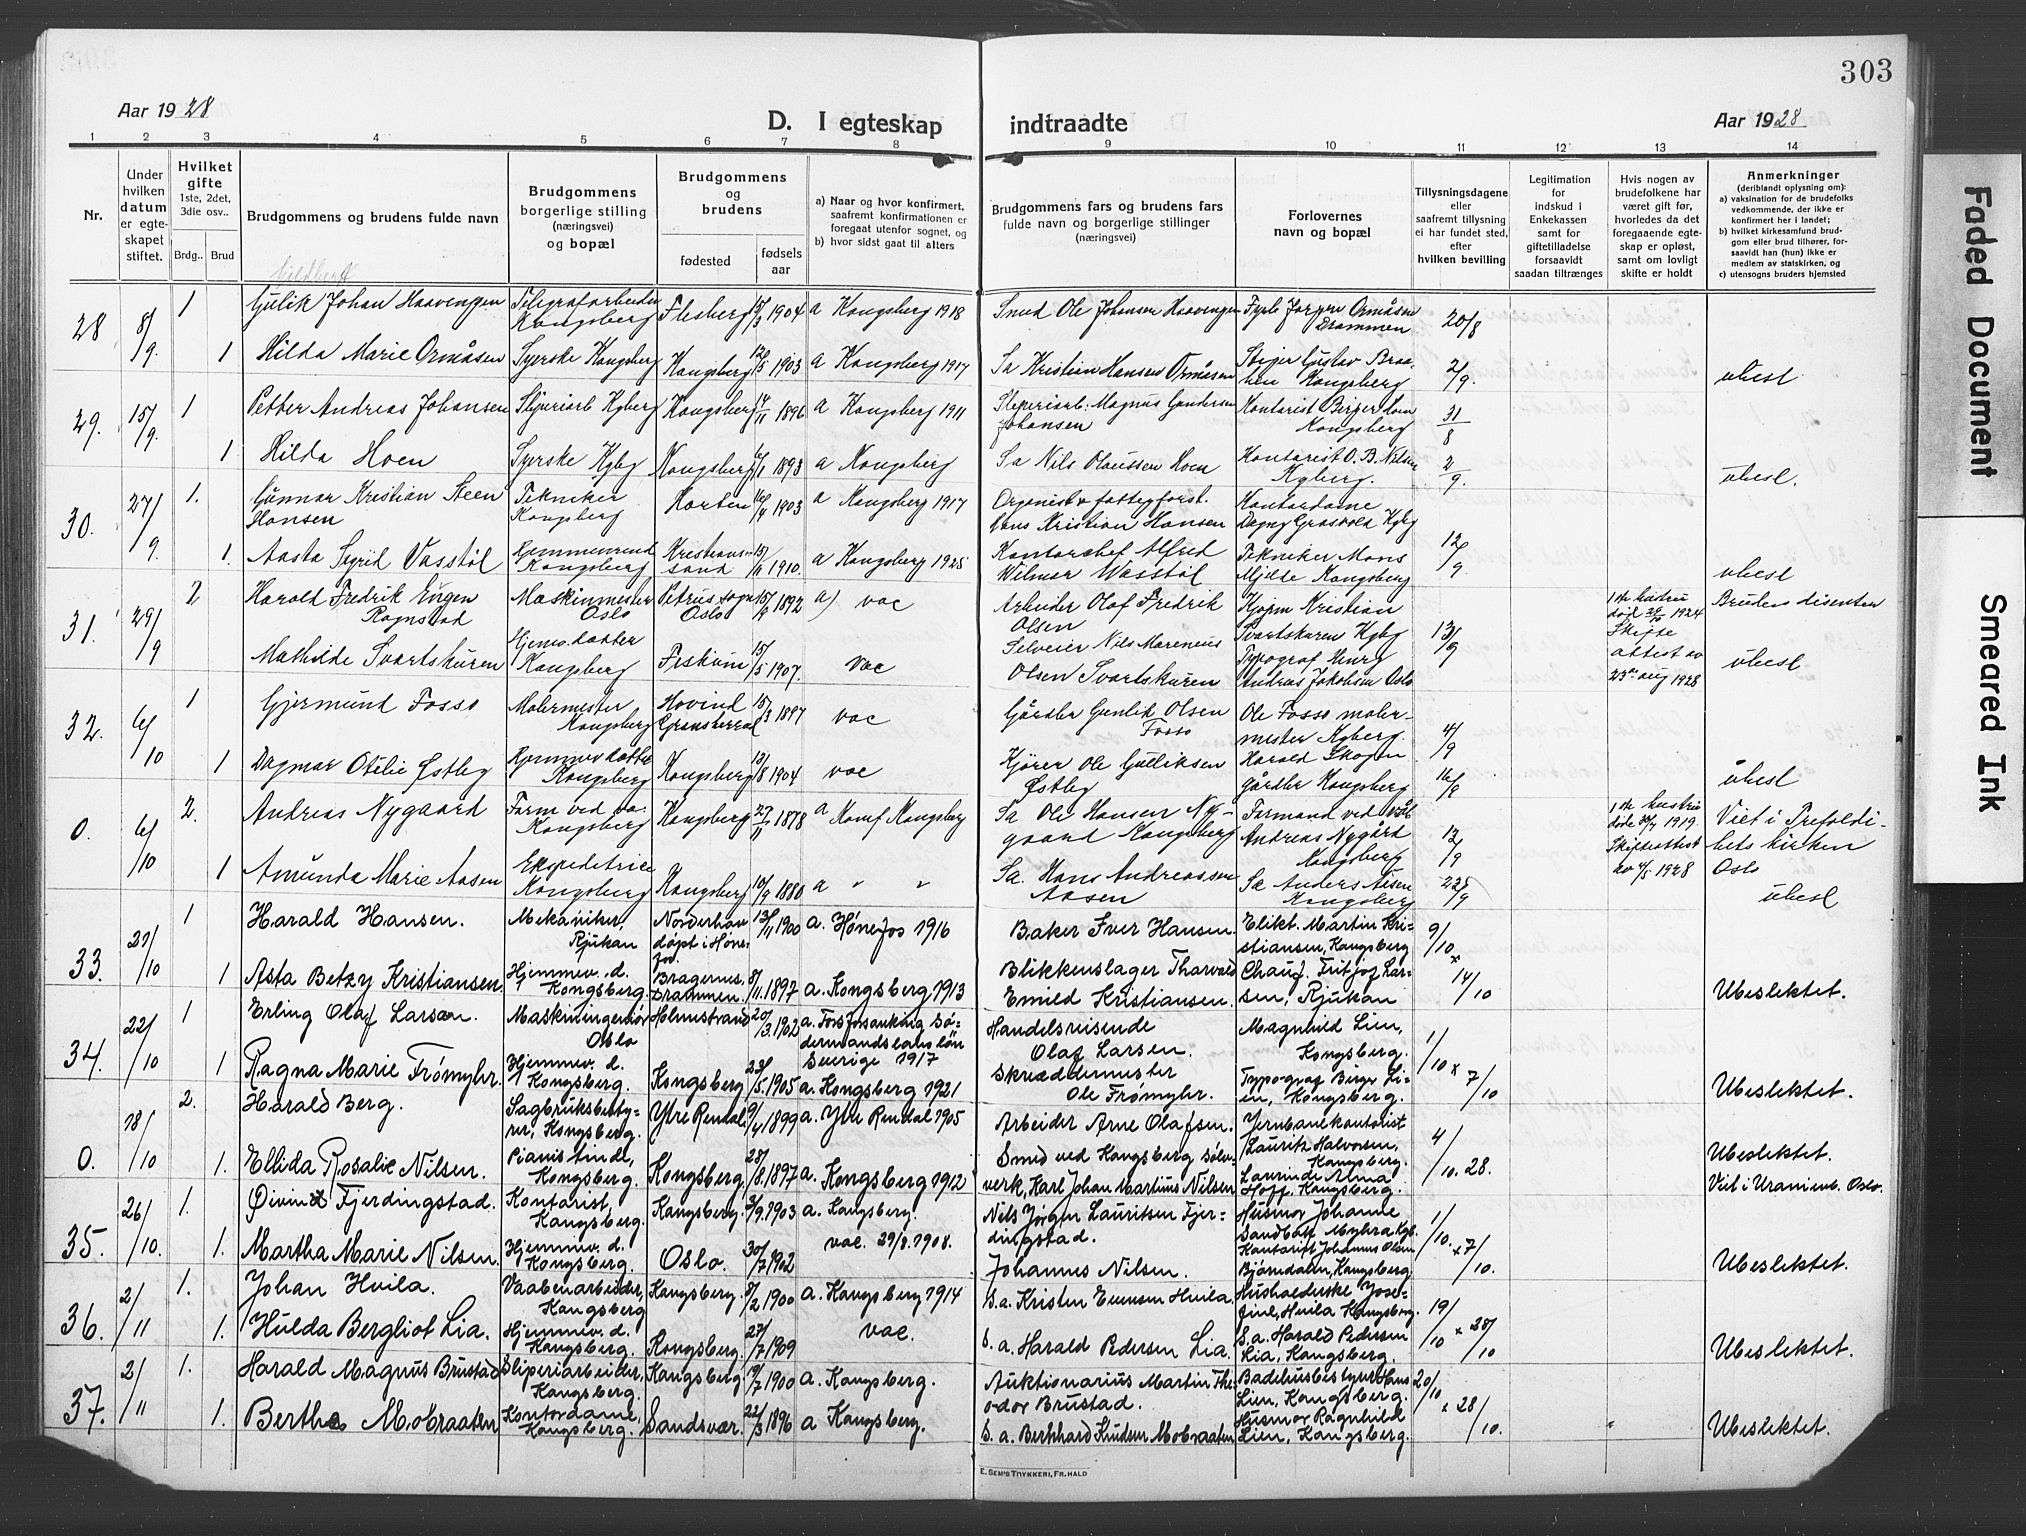 303
Aar 1928
D. I egteskap indtraadte
Aar 1928
1 2 3 4 5 6 7 8 9 10 11 12 13 14
Nr.
Under hvilken datum er egteskapet stiftet.
Hvilket gifte
1ste, 2det, 3die osv..
Brdg..
Brud
Brudgommens og brudens fulde navn
Brudgommens borgerlige stilling (næringsvei) og bopæl
Brudgommens og brudens
fødested
fødsels aar
a) Naar og hvor konfirmert, saafremt konfirmationen er foregaat utenfor sognet, og
b) hvor sidst gaat til alters
Brudgommens fars og brudens fars fulde navn og borgerlige stillinger (næringsvei)
Forlovernes navn og bopæl
Tillysningsdagene eller saafremt tillysning ei har fundet sted, efter hvilken bevilling
Legitimation for indskud i Enkekassen samt for giftetilladelse forsaavidt saadan tiltrænges
Hvis nogen av brudefolkene har været gift før, hvorledes da det foregaaende egteskap er opløst, samt om lovligt skifte er holdt
Anmerkninger
(deriblandt oplysning om):
a) vaksination for de brudefolks vedkommende, der ikke er konfirmert her i landet;
b) hvilket kirkesamfund brudgom eller brud tilhører, forsaavidt han (hun) ikke er medlem av statskirken, og
c) utensogns bruders hjemsted
28 8/9. 1 Johan Haavengen Telegrafarbeider Kongsberg Flesberg 1904 a Kongsberg 1918 Smed Ole Johansen Haavengen Ormåsen Drammen 20/8
1 Hilda Marie Ormåsen Syerske Kongsberg Kongsberg 12/5 1903 a Kongsberg 1917 Sa Kristian Hansen Ormåsen Stiger Gustav Braathen Kongsberg 2/9. ubesl
29. 15/9. 1 Petter Andreas Johansen Sliperiarb Kgberg Kongsberg 1896 a Kongsberg 1911 Sliperiarb. Magnus Gundersen Johansen Kontorist Birger Hoen Kongsberg 31/8
1 Hilda Hoen Syerske Kgbg Kongsberg 1893 a Kongsberg Sa Nils Olaussen Hoen Kontorist O. B. Nilsen Kgberg. 2/9. ubesl.
30. 27/9 1. Gunnar Kristian Steen Hansen Tekniker Kongsberg Horten 16/4 1903 a Kongsberg 1917 Organist & fattigforst. Hans Kristian Hansen Kontordame Dagny Grosvold Kgbg
1. Aasta Sigrid Vasstöl Kongsberg Kristiansand 1910. a Kongsberg 1925 Kontorchef Alfred Wilmar Wasstöl Tekniker Mons Mjelde Kongsberg 12/9 ubesl
31. 29/9 2 Harald Fredrik Eugen Rognstad Maskinmester Oslo Petrus sogn Oslo 1892 a) vac Arbeider Olaf Fredrik Olsen Kjøpm Kristian Svartskuren Kgbg 13/9 1ste hustru død 1924 Skifteattest av 23de aug 1928 Bruden disenter
Mathilde Svartskuren Hjemv datter Kongsberg Fiskum 15/5 1907. vac Selveier Nils Marenius Olsen Svartskuren Typograf Henry Andreas Jakobsen Oslo ubesl
32. 6/10 1 Gjermund Fosso Malermester Kongsberg Hovind Granskerud 15/3 1897 vac Gårdbr Gunlik Olsen Fosso Ole Fosso malermester Kgberg. 4/9
1 Dagmar Otilie Østby Kongsberg Kongsberg 13/8 1904 vac Kjører Ole Gulliksen Østby Harald Skogen gårdbr Kongsberg 16/8 ubesl
0. 6/10 2. Andreas Nygaard Form ved va. Kongsberg Kongsberg 27/11 1878 a Konf Kongsberg Sa Ole Hansen Nygaard Kongsberg Formand ved Andreas Nygård Kongsberg 12/9 1ste hustru døde 1919. Skifteattest av 4/5 1928 Viet i Trefoldighets kirken Oslo
1 Amunda Marie Aasen Ekspeditrice Kongsberg Kongsberg 10/9 1880 a " " Sa. Hans Andreassen Aasen Sa Anders Aasen Kongsberg 22/9 ubesl
33. 21/10 1 Harald Hansen. Mekaniker, Rjukan Norderhov døpt i Hønefos. 13/11 1900 a. Hønefos 1916 Baker Iver Hansen. Elikt. Martin Kristiansen, Kongsberg 9/10 x
1 Asta Betzy Kristiansen. Hjemmev. d. Kongsberg. Bragernes, Drammen. 8/11.1897 a. Kongsberg 1913 Blikkenslager Tharvald Emild Kristiansen. Chauf. Fritjof Larsen, Rjukan 14/10 Ubeslektet.
34. 22/10 1 Erling Olaf Larsen. Maskiningeniør Oslo Holmestrand 20/3.1902 a. Forsforsanking Södermandslands län Sverige 1917 Handelsreisende Olaf Larsen. Magnhild Lien, Kongsberg. 1/10 x
1 Ragna Marie Frømyhr. Hjemmev. d. Kongsberg. Kongsberg 23/5.1905 a. Kongsberg 1921 Skræddemester Ole Frømyhr. Typograf Birger Lien, Kongsberg. 7/10 Ubeslektet.
0. 18/10 2. Harald Berg. Sagbruksbestyrer, Kongsberg. Ytre Rendal 9/4 1899 a. Ytre Rendal 1905 Arbeider Arne Olafsen. Jernbanekontorist Laurits Halvorsen, Kongsberg. 4/10.28. Ubeslektet.
1. Ellida Rosalie Nilsen. Pianistinde, Kongsberg. Kongsberg. 23/8.1897 a. Kongsberg 1912 Smed ved Kongsberg sølvverk, Karl Johan Martius Nilsen Laurinde Alma Hoff, Kongsberg. Viet i Uranienb. Oslo.
35. 26/10. 1. Øivind Fjerdingstad. Kontorist, Kongsberg. Kongsberg. 3/9.1903 a. Kongsberg. Nils Jørgen Lauritsen Fjerdingstad. Husmor Johanne Sandbæk Myhra, Kgb. 1/10. x
1. Martha Marie Nilsen. Hjemmev. d. Kongsberg. Oslo. 30/7 1902 vac. 29/8.1908. Johannes Nilsen. Kontorist Johannes Olsen Bjørndalen, Kongsberg 7/10. Ubeslektet.
36. 2/11 1. Johan Hvila. Vaabenarbeider, Kongsberg Kongsberg. 8/2 1900 a. Kongsberg 1914 S.a. Kristen Evensen Hvila. Husholderske Josefine Hvila Kongsberg. 19/10 x
1. Hulda Bergliot Lia. Hjemmev. d. Kongsberg. Kongsberg. 27/7 1909 vac. S. a. Harald Pedersen Lia. S.a. Harald Pedersen Lia, Kongsberg. 28/10 Ubeslektet.
37. 2/11 1. Harald Magnus Brustad Sliperiarbeider, Kongsberg. Kongsberg 1900 a. Kongsberg. Auktionarius Martin Theodor Brustad. Badehusbestyrer Hans Lien, Kongsberg. 20/10 x
1. Bertha Mobraaten Kontordame, Kongsberg. Sandsvær. 22/3 1896 a Kongsberg. S. a. Bernhard Knudsen Mobraaten Husmor Ragnhild Lien, Kongsberg. 28/10. Ubeslektet.
E. SEM'S TRYKKERI, FR.HALD
Faded Document
Smeared Ink